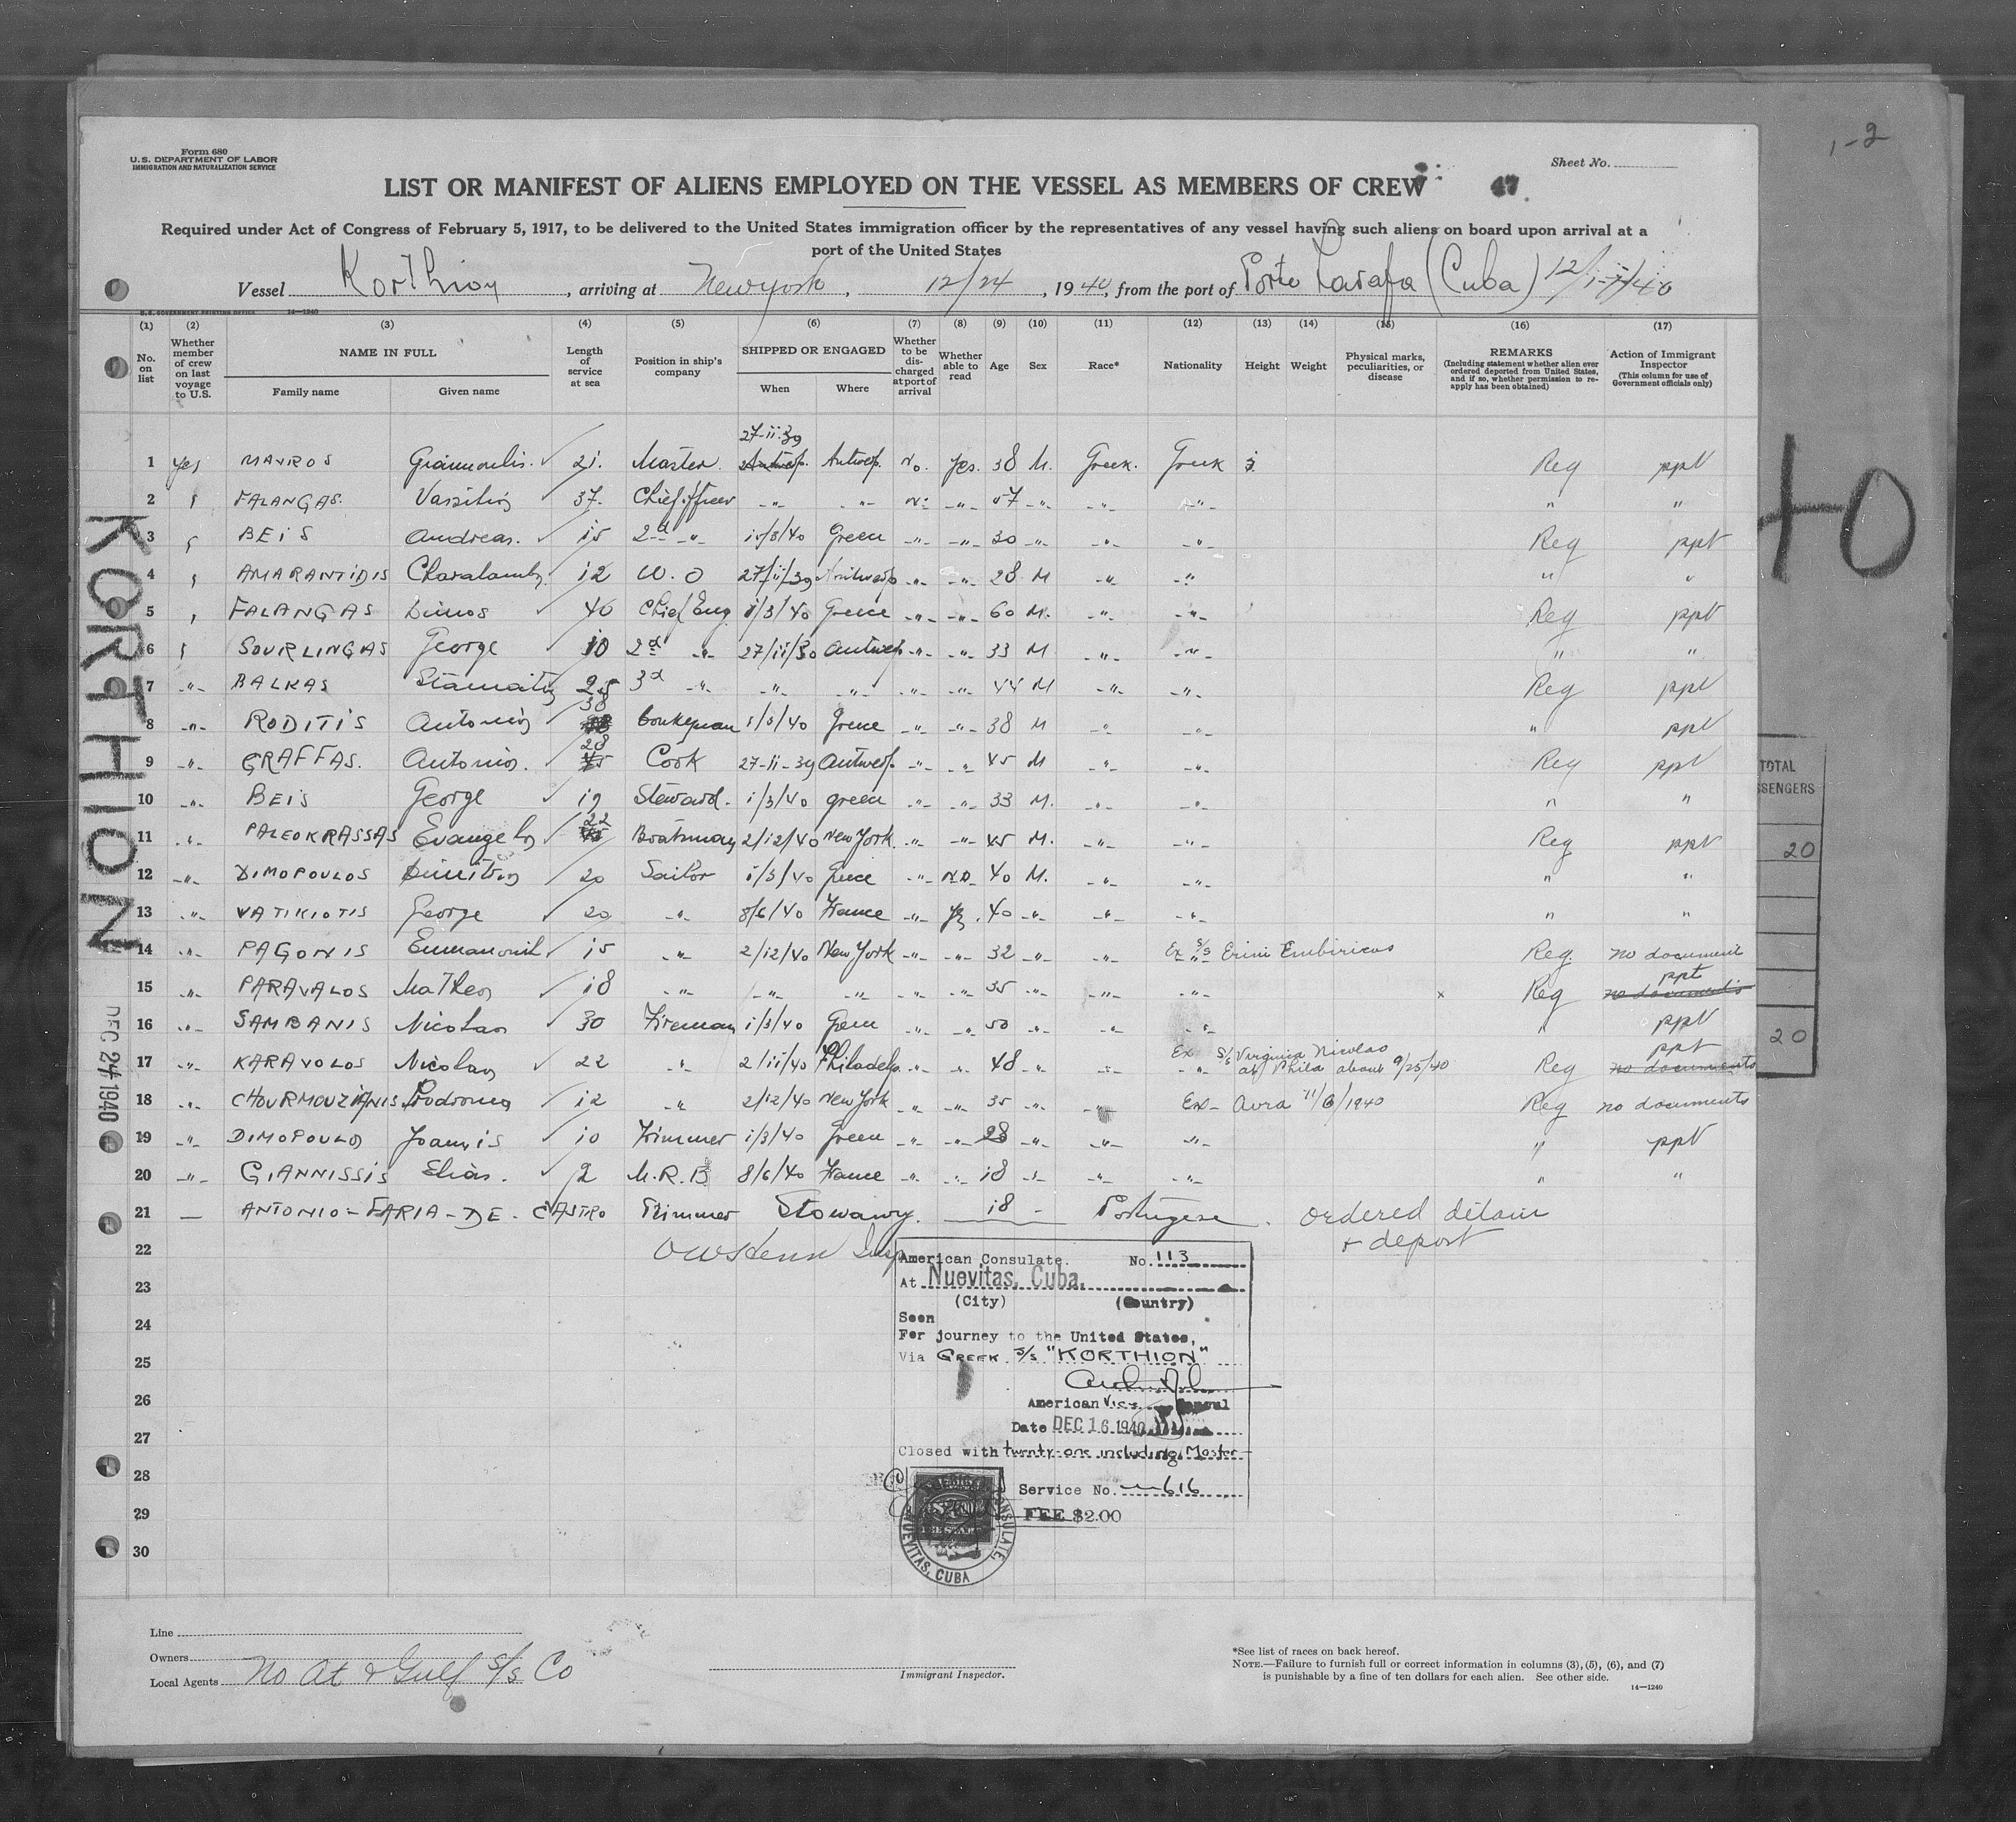 1-2
Form 680
U.S. DEPARTMENT OF LABOR
IMMIGRATION AND NATURALIZATION SERVICE
Sheet No.
LIST OR MANIFEST OF ALIENS EMPLOYED ON THE VESSEL AS MEMBERS OF CREW 47
Required under Act of Congress of February 5, 1917, to be delivered to the United States immigration officer by the representatives of any vessel having such aliens on board upon arrival at a
port of the United States
Vessel Korthion, arriving at New York, 12/24, 1940, from the port of Porto Tarafa (Cuba) 12/17/40
U.S. GOVERNMENT PRINTING OFFICE 14—1240
(1) (2) (3) (4) (5) (6) (7) (8) (9) (10) (11) (12) (13) (14) (15) (16) (17)
No. on list
Whether member of crew on last voyage to U.S.
NAME IN FULL
Family name
Given name
Length of service at sea
Position in ship's company
SHIPPED OR ENGAGED
When
Where
Whether to be discharged at port of arrival
Whether able to read
Age
Sex
Race*
Nationality
Height
Weight
Physical marks, peculiarities, or disease
REMARKS
(Including statement whether alien ever ordered deported from United States, and if so, whether permission to reapply has been obtained)
Action of Immigrant Inspector
(This column for use of Government officials only)
27-11-39
1 Yes MAVROS 21. Master. Antwerp. No. Yes. 38 M. Greek. Greek Reg ppt
2 FALANGAS. Vassilios 37 Chief officer -"- -"- No -"- 57 -"- -"- -"- " "
3 BEIS Andreas. 15 2d -"- Greece -"- -"- 30 -"- -"- -"- Reg ppt
4 AMARANTIDIS 12 W.O 27/11/39 Antwerp -"- -"- 28 M -"- -"- " "
5 FALANGAS Dimos 40 Chief Eng 1/3/40 Greece -"- -"- 60 M. -"- -"- Reg ppt
6 SOURLINGAS George 10 2d -"- Antwerp -"- -"- 33 M -"- -"- " "
7 -"- BALKAS Stamatis 25 3d -"- -"- -"- -"- -"- 44 M -"- -"- Reg ppt
8 -"- RODITIS Antonios 38 Donkeyman Greece -"- -"- 38 M -"- -"- " ppt
9 -"- GRAFFAS. Antonios. 28 Cook 27-11-39 Antwerp. -"- -"- 45 M -"- -"- Reg ppt
10 -"- BEIS George Steward. 1/3/40 Greece -"- -"- 33 M. -"- -"- " "
11 -"- PALEOKRASSAS Evangelos 22 Boatsman 2/12/40 New York. -"- -"- 45 M. -"- -"- Reg ppt
12 -"- DIMOPOULOS Dimitrios 20 Sailor 1/3/40 Greece -"- No. 40 M. -"- -"- " "
13 -"- VATIKIOTIS George 20 -"- 8/6/40 France -"- Yes. 40 -"- -"- -"- " "
14 -"- PAGONIS Emmanouil 15 -"- 2/12/40 New York -"- -"- 32 -"- -"- Ex S/S Erini Embiricos Reg. no document
15 -"- PARAVALOS Matheos 18 -"- -"- -"- -"- -"- 35 -"- -"- -"- x Reg ppt no documents
16 -"- SAMBANIS Nicolaos 30 Fireman 1/3/40 Greece -"- -"- 50 -"- -"- -"- " ppt
17 -"- KARAVOLOS Nicolaos 22 -"- 2/11/40 Philadelp. -"- -"- 48 -"- -"- Ex S/S Virginia Nicolao
at Phila about 9/25/40 Reg ppt no documents
18 -"- CHOURMOUZIANIS Prodromos 12 -"- 2/12/40 New York -"- -"- 35 -"- -"- Ex- Avra 11/6/1940 Reg no documents
19 -"- DIMOPOULOS Joannis 10 Trimmer 1/3/40 Greece -"- -"- 28 -"- -"- -"- " ppt
20 -"- GIANNISSIS Elias. 2 M.R.B 8/6/40 France -"- -"- 18 -"- -"- -"- " "
21 — ANTONIO-FARIA-DE-CASTRO Trimmer Stowawy. 18 - Portugese. ordered detain
& deport
22
23
24
25
26
27
28
29
30
KORTHION
DEC 24 1940
40
TOTAL
20
20
American Consulate. No. 113
At Nuevitas, Cuba.
(City) (Country)
Seen
For journey to the United States,
Via GREEK S/S "KORTHION"
American Vice Consul
Date DEC 16 1940
Closed with twenty-one including Master
Service No. 616
FEE $2.00
AMERICAN CONSULATE, NUEVITAS, CUBA
Line
Owners
Local Agents No At & Gulf S/S Co
Immigrant Inspector.
*See list of races on back hereof.
NOTE.—Failure to furnish full or correct information in columns (3), (5), (6), and (7)
is punishable by a fine of ten dollars for each alien. See other side.
14—1240